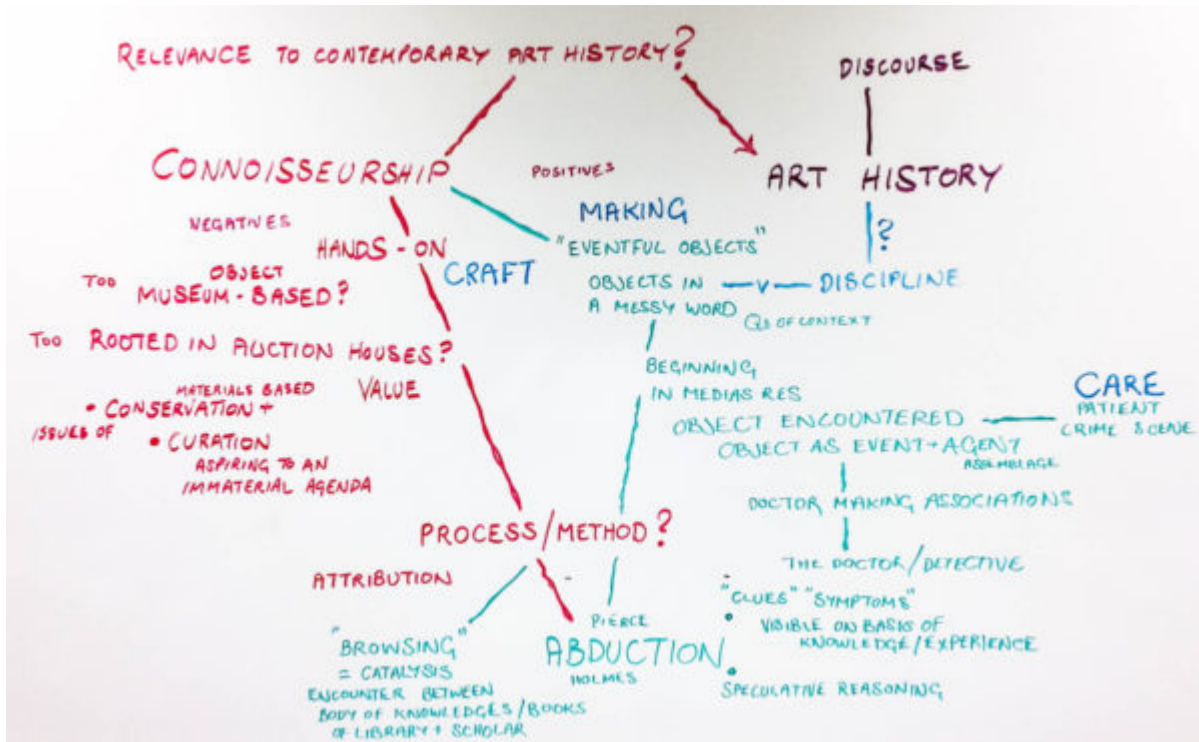 RELEVANCE TO CONTEMPORARY ART HISTORY?
DISCOURSE
CONNOISSEURSHIP
POSITIVES
ART HISTORY
NEGATIVES
MAKING
?
HANDS-ON
"EVENTFUL OBJECTS"
CRAFT
OBJECT
TOO MUSEUM-BASED?
OBJECTS IN —V— DISCIPLINE
A MESSY WORD
QS OF CONTEXT
TOO ROOTED IN AUCTION HOUSES?
VALUE
BEGINNING
IN MEDIAS RES
MATERIALS BASED
• CONSERVATION +
ISSUES OF
• CURATION
ASPIRING TO AN
IMMATERIAL AGENDA
CARE
PATIENT
CRIME SCENE
OBJECT ENCOUNTERED
OBJECT AS EVENT + AGENT
ASSEMBLAGE
DOCTOR MAKING ASSOCIATIONS
THE DOCTOR/DETECTIVE
"CLUES" "SYMPTOMS"
• VISIBLE ON BASIS OF
KNOWLEDGE/EXPERIENCE
• SPECULATIVE REASONING
PROCESS/METHOD?
ATTRIBUTION
"BROWSING"
= CATALYSIS
ENCOUNTER BETWEEN
BODY OF KNOWLEDGES/BOOKS
OF LIBRARY + SCHOLAR
PIERCE
ABDUCTION
HOLMES